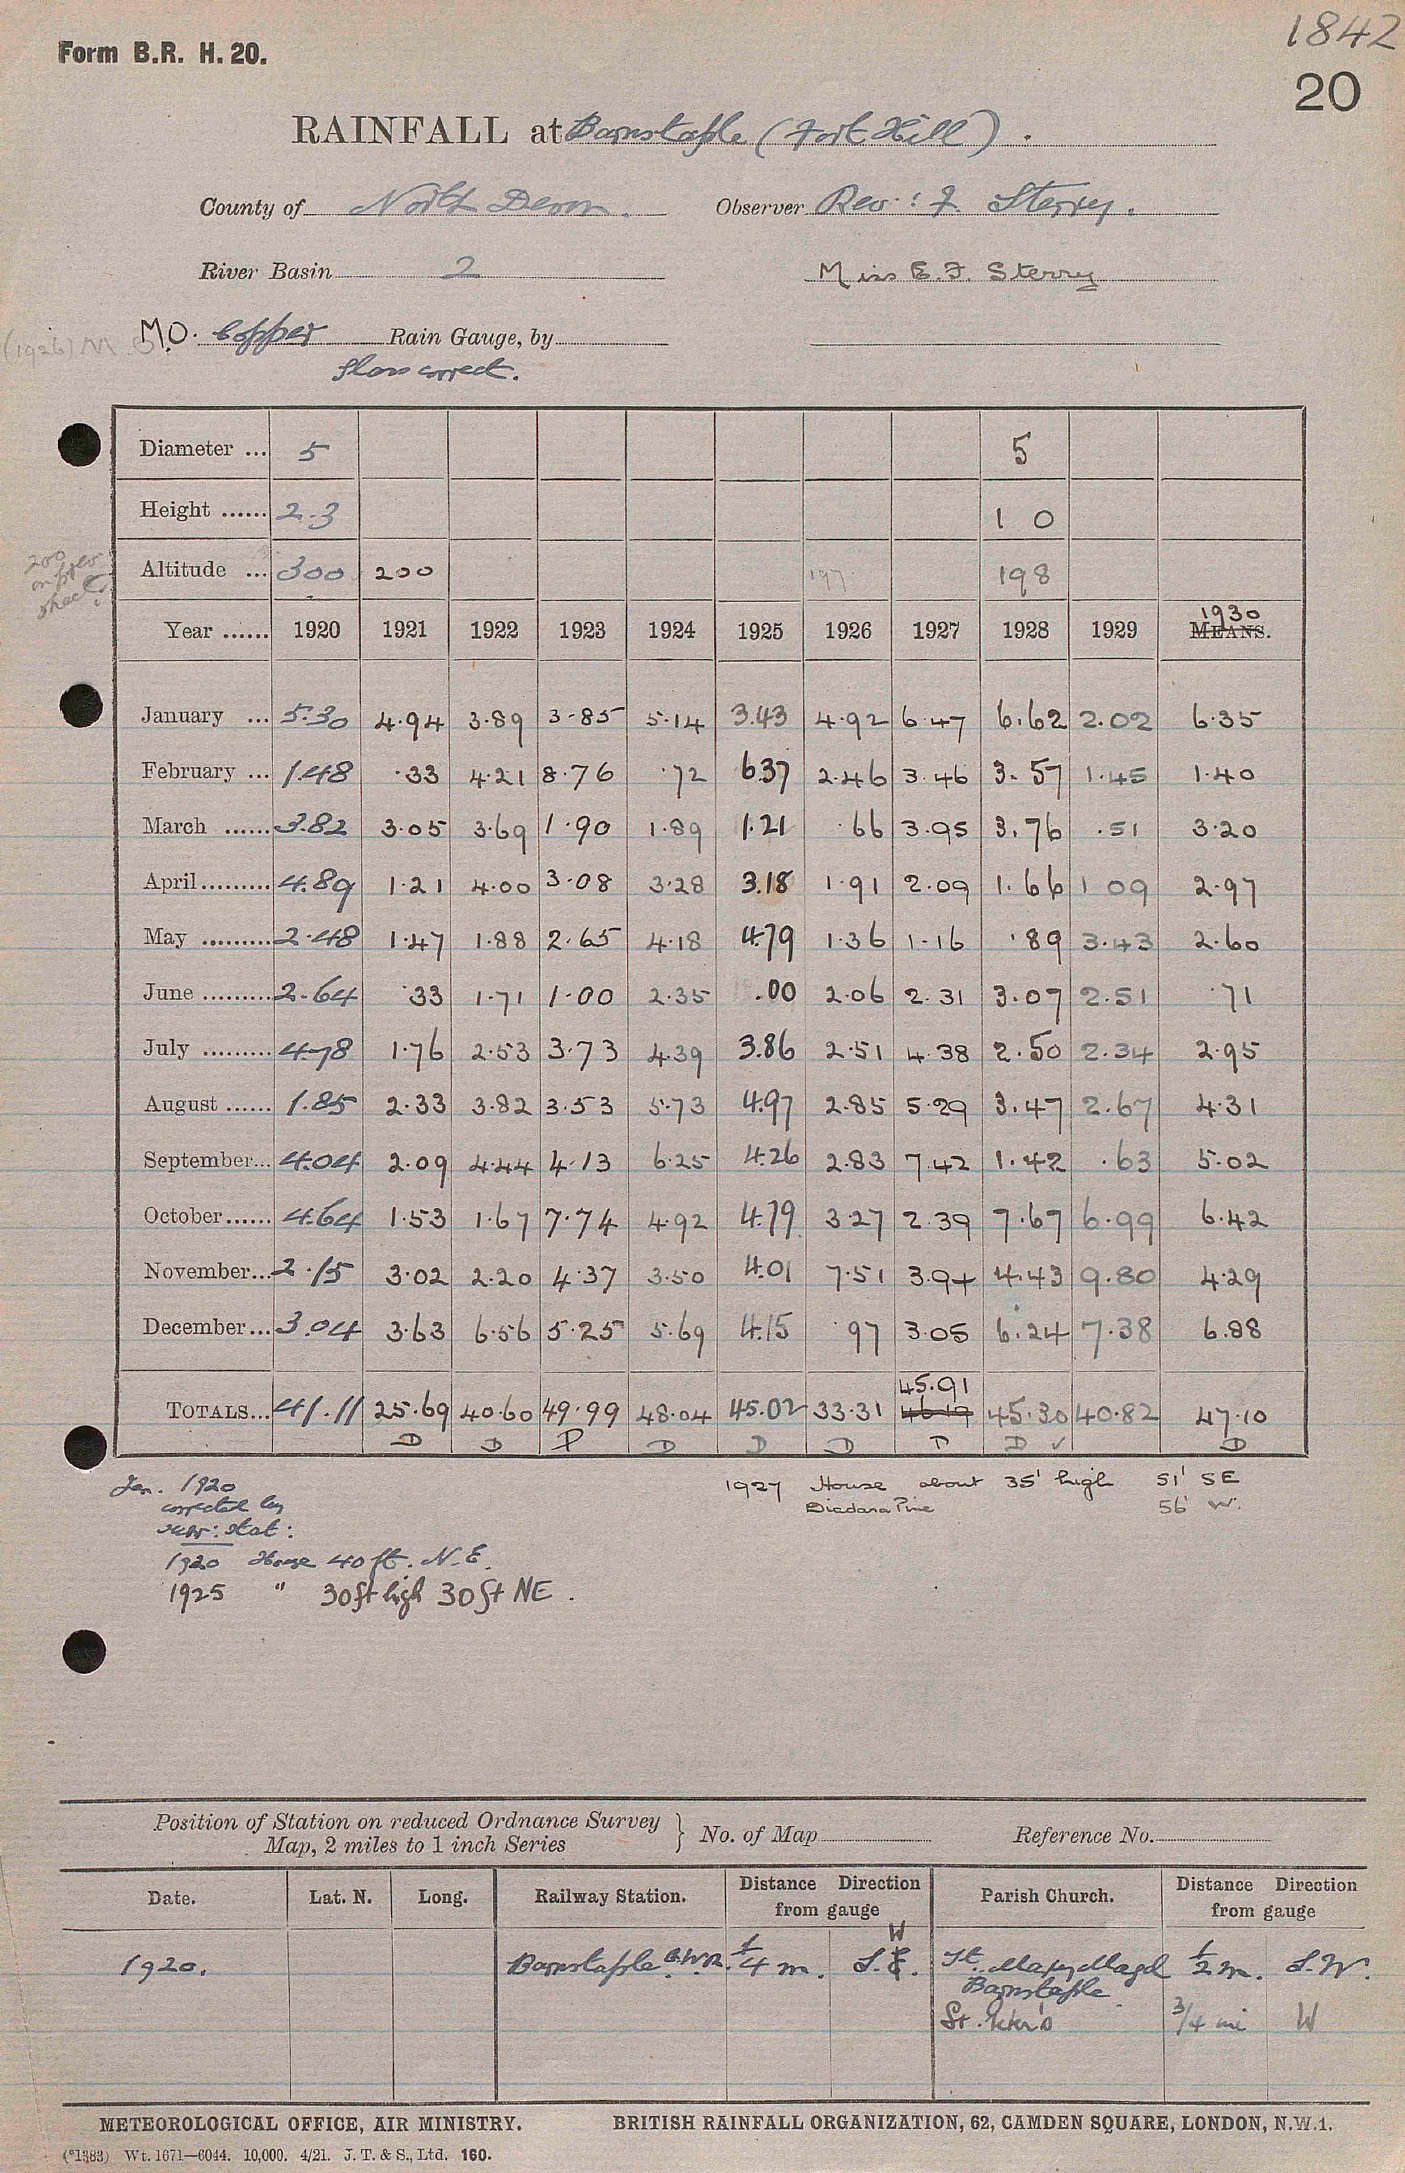 1842
Form B.R. H. 20.
20
RAINFALL at Barnstaple (Fort Hill).
County of North Devon. Observer Rev: F. Sterry.
River Basin 2 Miss E. F. Sterry
(1926) M.O.
M.O. Copper Rain Gauge, by
Glass correct.
Diameter ... 5 5
Height ...... 2.3 1 0
200
on
sheet
Altitude ... 300 200 197 198
Year ...... 1920 1921 1922 1923 1924 1925 1926 1927 1928 1929 1930 MEANS.
January ... 5.30 4.94 3.89 3.85 5.14 3.43 4.92 6.47 6.62 2.02 6.35
February ... 1.48 .33 4.21 8.76 .72 6.37 2.46 3.46 3.57 1.45 1.40
March ...... 3.82 3.05 3.69 1.90 1.89 1.21 .66 3.95 3.76 .51 3.20
April ......... 4.89 1.21 4.00 3.08 3.28 3.18 1.91 2.09 1.66 1 09 2.97
May ......... 2.48 1.47 1.88 2.65 4.18 4.79 1.36 1.16 .89 3.43 2.60
June ......... 2.64 .33 1.71 1.00 2.35 .00 2.06 2.31 3.07 2.51 .71
July ......... 4.78 1.76 2.53 3.73 4.39 3.86 2.51 4.38 2.50 2.34 2.95
August ...... 1.85 2.33 3.82 3.53 5.73 4.97 2.85 5.29 3.47 2.67 4.31
September... 4.04 2.09 4.44 4.13 6.25 4.26 2.83 7.42 1.42 .63 5.02
October ...... 4.64 1.53 1.67 7.74 4.92 4.79 3.27 2.39 7.67 6.99 6.42
November... 2.15 3.02 2.20 4.37 3.50 4.01 7.51 3.94 4.43 9.80 4.29
December ... 3.04 3.63 6.56 5.25 5.69 4.15 .97 3.05 6.24 7.38 6.88
45.91
TOTALS... 41.11 25.69 40.60 49.99 48.04 45.02 33.31 46.19 45.30 40.82 47.10
D D P D D D P D ✓ D
Jan. 1920
corrected by
supr: stat:
1920 House 40 ft. N.E.
1925 " 30 ft high 30 ft NE.
1927 House about 35' high 51' SE
Diadara Pine 56' W.
Position of Station on reduced Ordnance Survey
Map, 2 miles to 1 inch Series } No. of Map Reference No.
Date. Lat. N. Long. Railway Station. Distance Direction from gauge Parish Church. Distance Direction from gauge
W
1920. Barnstaple G.W.R. 1/4 m. S.E. St. Mary Magd 1/2 m. S.W.
Barnstaple
St. Peter's 3/4 mi W
METEOROLOGICAL OFFICE, AIR MINISTRY. BRITISH RAINFALL ORGANIZATION, 62, CAMDEN SQUARE, LONDON, N.W.1.
(*1383) Wt. 1671—6044. 10,000. 4/21. J. T. & S., Ltd. 160.